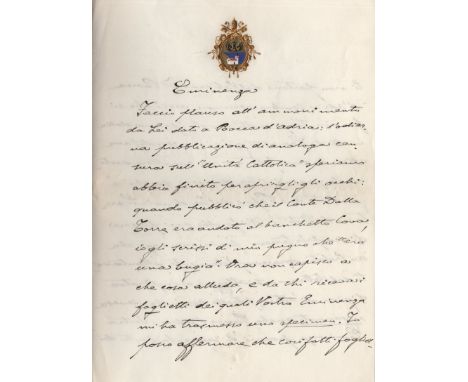 Eminenza
Faccio plauso all'ammonimento
da Lei dato a Bocca d'Adria; l'odier-
na pubblicazione di analoga cen-
sura sull'"Unità Cattolica" speriamo
abbia finito per aprirgli gli occhi:
quando pubblicò che il Conte Dalla
Torre era andato al banchetto Cova,
io gli scrissi di mio pugno che "era
una bugia". Ora non capisco a
che cosa alluda, e da chi ricevasi
foglietti dei quali Vostra Eminenza
mi ha trasmesso uno specimen. Io
posso affermare che cosifatti foglict-